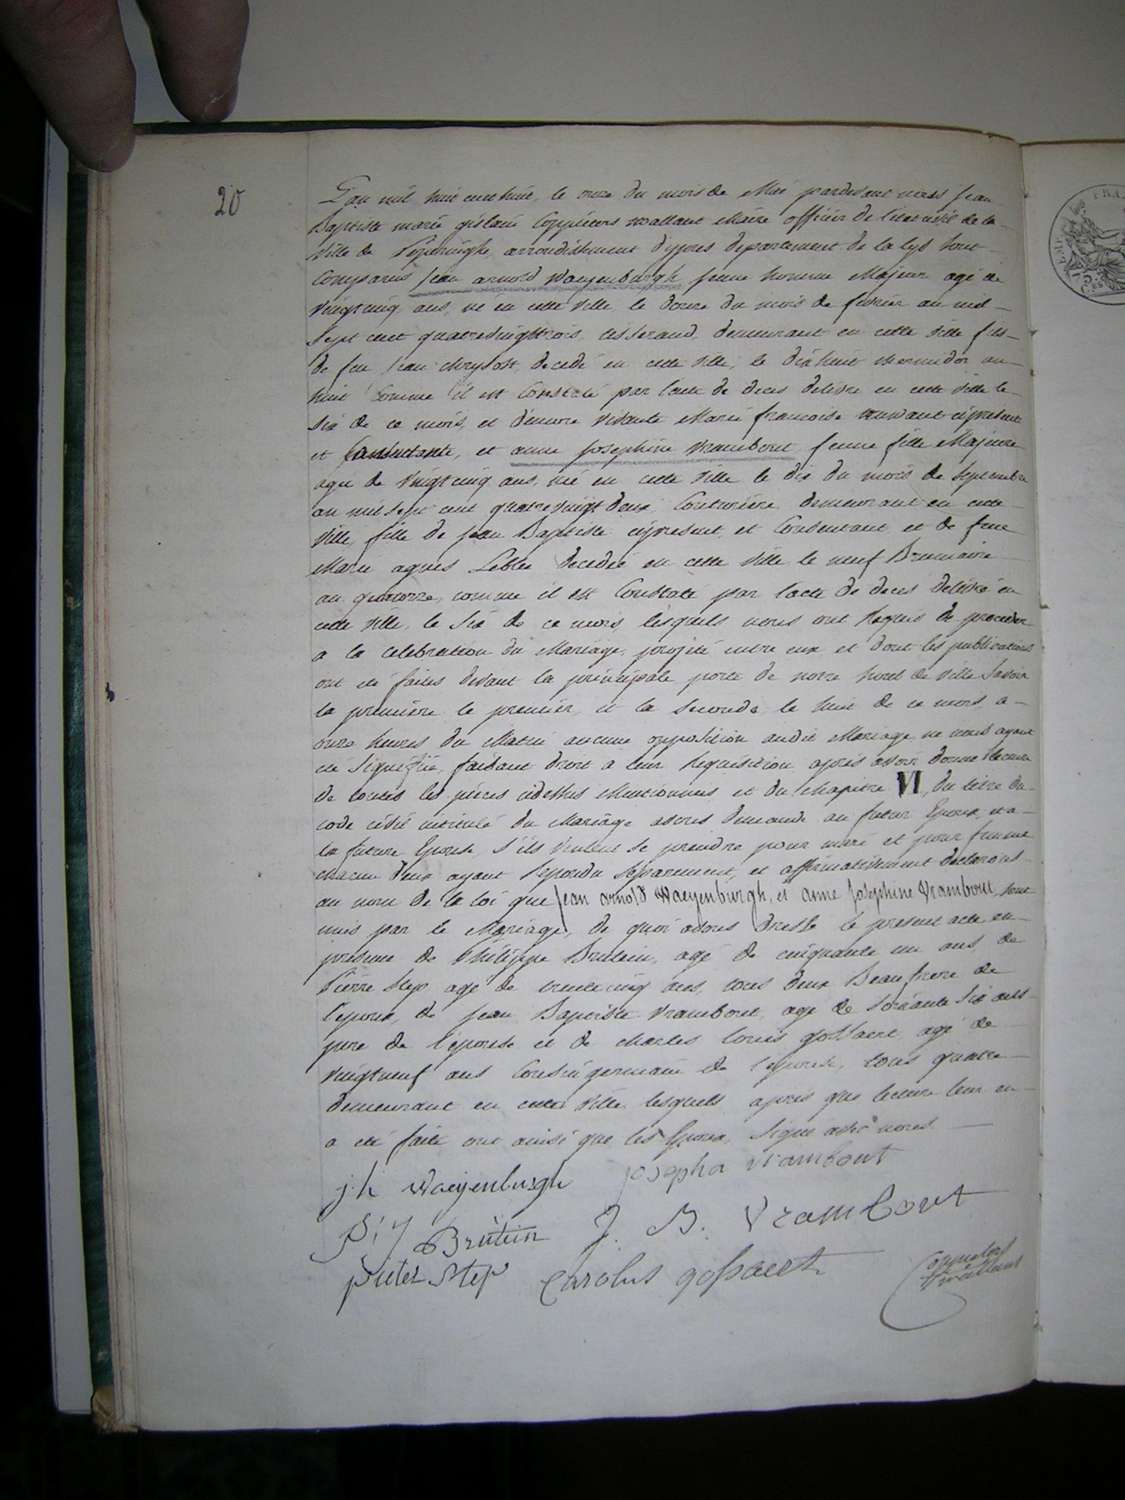 20
L'an mil huit cent huit, le onze du mois de Mai pardevant nous Jean
Baptiste marie gislain Coppieters wallant Maire officier de l'etat civil de la
ville de Poperinghe, arrondissement d'ypres departement de la Lys sont
Comparus Jean arnold Waeyenburgh jeune homme Majeur agé de
vingtcinq ans, né en cette ville le douze du mois de fevrier an mil
sept cent quatrevingttrois tisserand, demeurant en cette ville fils
de feu Jean chrysost. decedé en cette ville, le dixhuit thermidor an
huit Comme il est Constaté par l'acte de deces delivré en cette ville le
six de ce mois, et d'encore vivante Marie francoise cipresente
et Consentante, et anne Josephine Vrambout, jeune fille Majeure
agee de vingtcinq ans, née en cette ville le dix du mois de septembre
an mil sept cent quatrevingt deux Couturière demeurant en cette
ville fille de Jean Baptiste cipresent et Consentant et de feue
Marie agnes Leblee decedée en cette ville le neuf Brumaire
an quatorze, comme il est Constaté par l'acte de deces delivré en
cette ville, le six de ce mois, lesquels nous ont Requis de proceder
a la celebration du Mariage projeté entre eux et dont les publications
ont été faites devant la principale porte de notre hotel de ville savoir
la premiere le premier, et la seconde le huit de ce mois a
onze heures du Matin aucune opposition audit Mariage ne nous ayant
été signifiée, faisant droit a leur Requisition après avoir donné lecture
de toutes les pieces cidessus Mentionnées et du chapitre VI, du titre du
code civil intitulé du Mariage avons demandé au futur Epoux, et a
la future Epouse, s'ils veulent se prendre pour mari et pour femme
chacun d'eux ayant repondu separement, et affirmativement declarons
au nom de la loi que Jean arnold Waeyenburgh, et anne Josephine Vrambout, sont
unis par le Mariage, de quoi avons dressé le present acte en
presence de Philippe Brutein, agé de cinquante un ans, de
Pierre Step agé de trente cinq ans, tous deux Beaufrere de
l'epoux, de Jean Baptiste Vrambout, agé de soixante six ans
pere de l'epouse et de Charles Louis gossaert agé de
vingtneuf ans Cousin germain de l'epouse, tous quatre
demeurant en cette ville lesquels après que lecture leur en
a eté faite ont ainsi que les Epoux, signé avec nous
j:h waeyenburgh Josepha vrambout
Brutein J. B. Vrambout
pieter Step Carolus gossaert